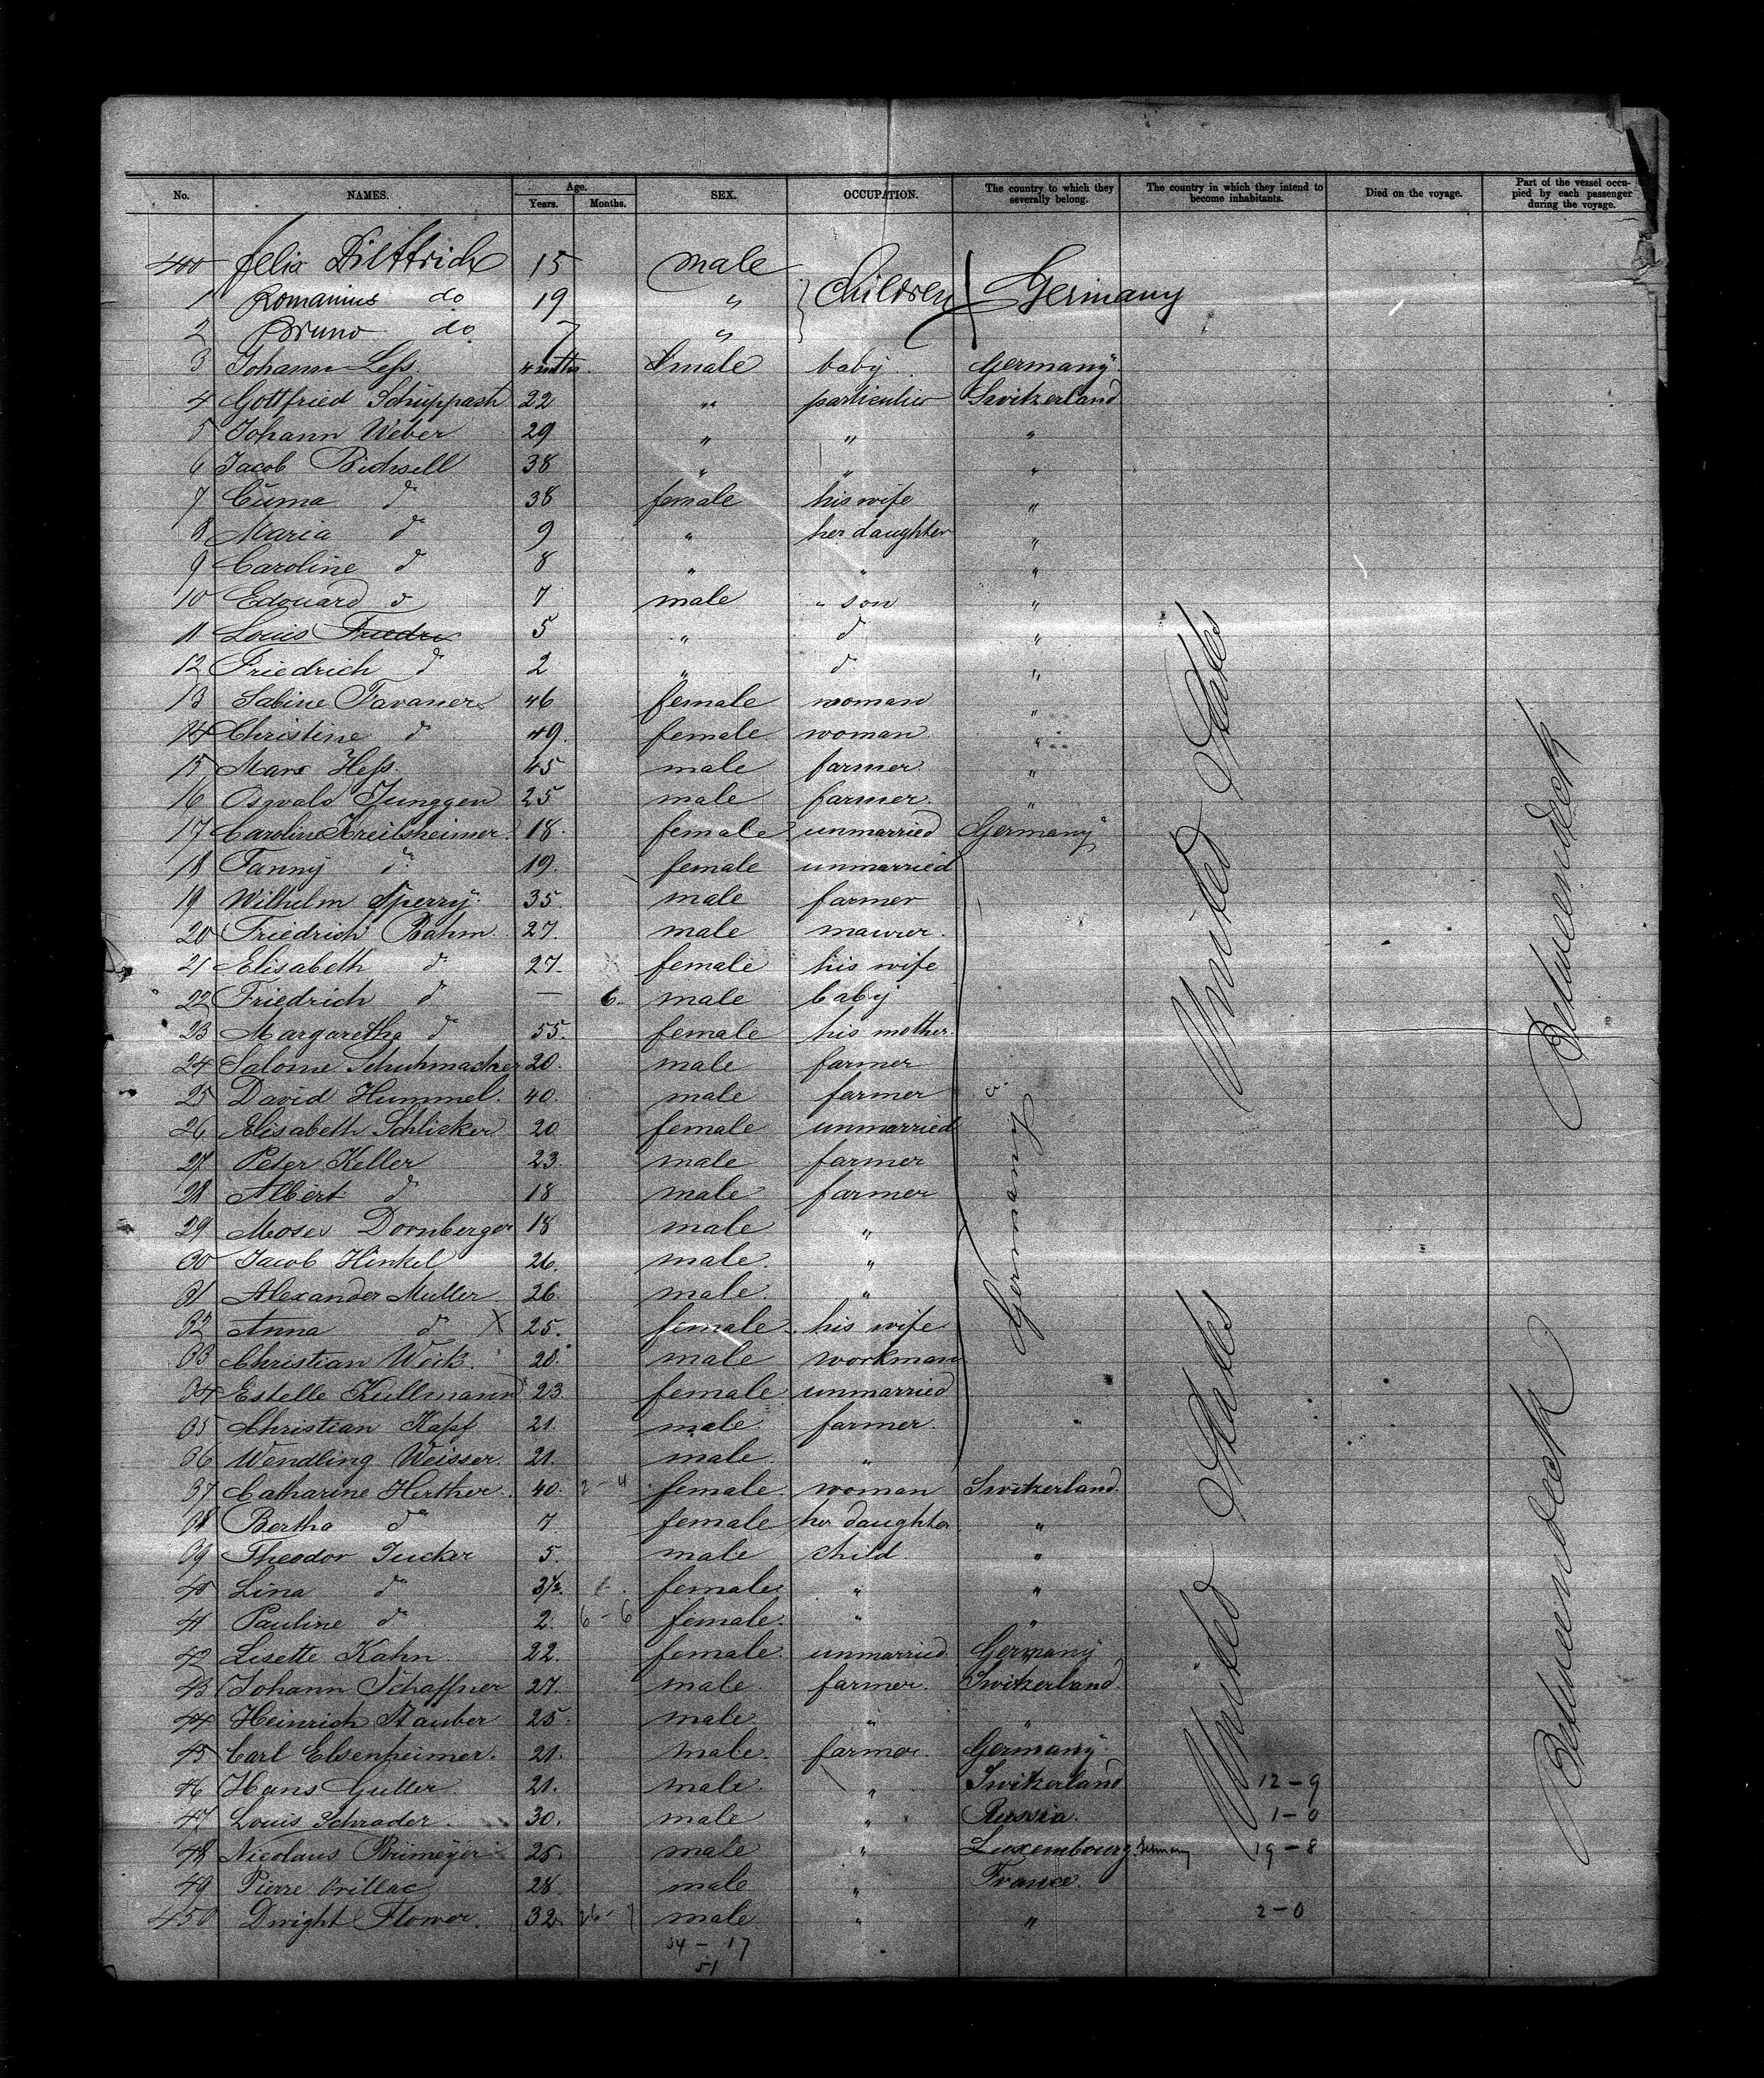 No. NAMES. Age. Years. Months. SEX. OCCUPATION. The country to which they severally belong. The country in which they intend to become inhabitants. Died on the voyage. Part of the vessel occupied by each passenger during the voyage.
400 Felix Dittrich 15 male
1 Romanius do 19 " } Children } Germany
2 Bruno do 7 "
3 Johann Leſs. 4 mths. male baby Germany
4 Gottfried Schuppach 22 " particulier Switzerland
5 Johann Weber 29 " " "
6 Jacob Bichsell 38 " " "
7 d° 38 female his wife "
8 Maria d° 9 " her daughter "
9 Caroline d° 8 " " "
10 Edouard d° 7 male " son "
11 Louis Friedr 5 " d° "
12 Friedrich d° 2 " d° "
13 Sabine Tavaner 46 female woman "
14 Christine d° 49. female woman "
15 Marx Heſs. 45 male farmer "
16 Oswald Junggen 25 male farmer. "
17 Caroline Kreilsheimer. 18. female unmarried Germany
18 Fanny d° 19. female unmarried
19 Wilhelm Sperry. 35. male farmer
20 Friedrich Rahm. 27. male maurer.
21 Elisabeth d° 27. female his wife
22 Friedrich d° — 6. male baby
23 Margaretha d° 55. female his mother.
24 Salome Schuhmacher 20. male farmer
25 David Hummel. 40. male farmer
26 Elisabeth Schlicker 20 female unmarried
27 Peter Keller 23. male farmer
28 Albert d° 18 male farmer
29 Moses Dornberger 18 male "
30 Jacob Hinkel 26. male. "
31 Alexander Muller 26. male. "
32 Anna d° X 25. female. his wife
33 Christian Weik. 28. male workman
34 Estelle Kullmann 23. female unmarried
35 Christian Kapf 21. male. farmer.
36 Wendling Weisser 21. male. "
37 Catharine Hirther. 40. 2 - 4 female. woman Switzerland.
38 Bertha d° 7. female her daughter. "
39 Theodor Jucker 5. male child. "
40 Lina d° 3½. female. " "
41 Pauline d° 2. 6 - 6 female. " "
42 Lisette Kahn. 22. female. unmarried Germany
43 Johann Schaffner 27. male. farmer. Switzerland.
44 Heinrich Stauber 25. male " "
45 Carl Elsenheimer. 21. male. farmer. Germany.
46 Hans Guller. 21. male. " Switzerland 12 - 9
47 Louis Schrader. 30. male " Russia. 1 - 0
48 Nicolaus Brimeyer 25. male " Luxembourg. Germany 19 - 8
49 Pierre Brillac 28. male " France.
450 Dwight Flower. 32. 26 - 7 male. " " 2 - 0
34 - 17
51
Germany
United States
United States
Betweendeck
Betweendeck